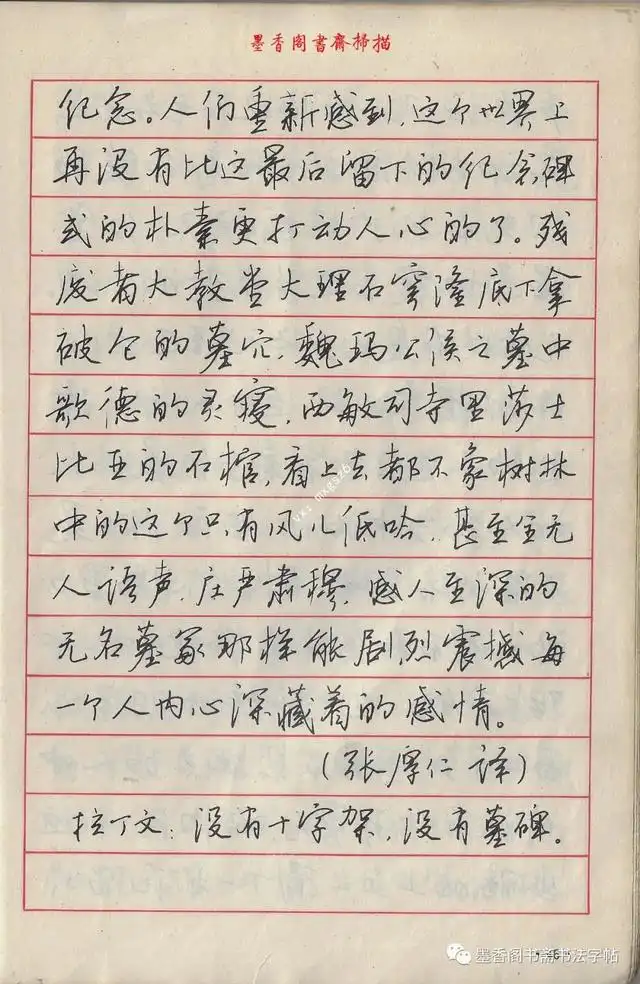 墨香阁書齋掃描
纪念。人们重新感到,这个世界上
再没有比这最后留下的纪念碑
式的朴素更打动人心的了。残
废者大教堂大理石穹隆底下拿
破仑的墓穴,魏玛公侯之墓中
歌德的灵寝,西敏司寺里莎士
比亚的石棺,看上去都不象树林
中的这个只有风儿低吟,甚至全无
人语声,庄严肃穆,感人至深的
无名墓冢那样能剧烈震撼每
一个人内心深藏着的感情。
(张厚仁 译)
拉丁文:没有十字架,没有墓碑。
vx: mxgs26
·46·
墨香阁书斋书法字帖